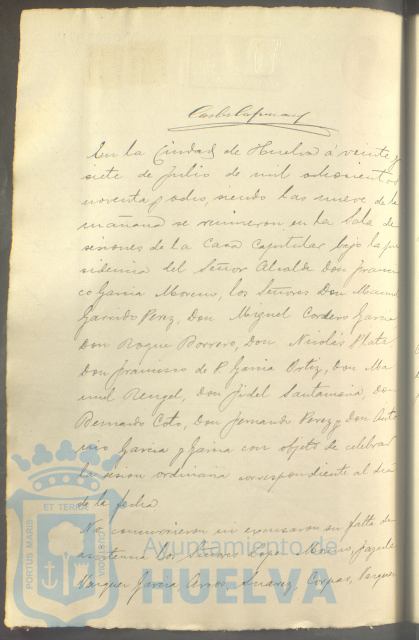 En la Ciudad de Huelva á veinte y
siete de Julio de mil ochocientos
noventa y ocho, siendo las nueve de la
mañana se reunieron en la Sala de
sesiones de la Casa Capitular bajo la pre
sidencia del Señor Alcalde Don Francis
co Garcia Moreno, los Señores Don Manuel
Garrido Perez, Don Miguel Cordero Garcia
Don Roque Borrero, Don Nicolás Plata
Don Francisco de P. Garcia Ortiz, Don Ma
nuel Rengel, Don Fidel Santamaria, Don
Bernardo Coto, Don Fernando Perez y Don Anto
nio Garcia y Garcia con objeto de celebrar
la sesion ordinaria correspondiente al dia
de la fecha
No concurrieron ni escusaron su falta de
asistencia los Señores Lopez Moreno,
Vazquez, Garcia Suarez, Vazquez
PORTUS MARIS ET TERRE CUSTODIA
Ayuntamiento de
HUELVA